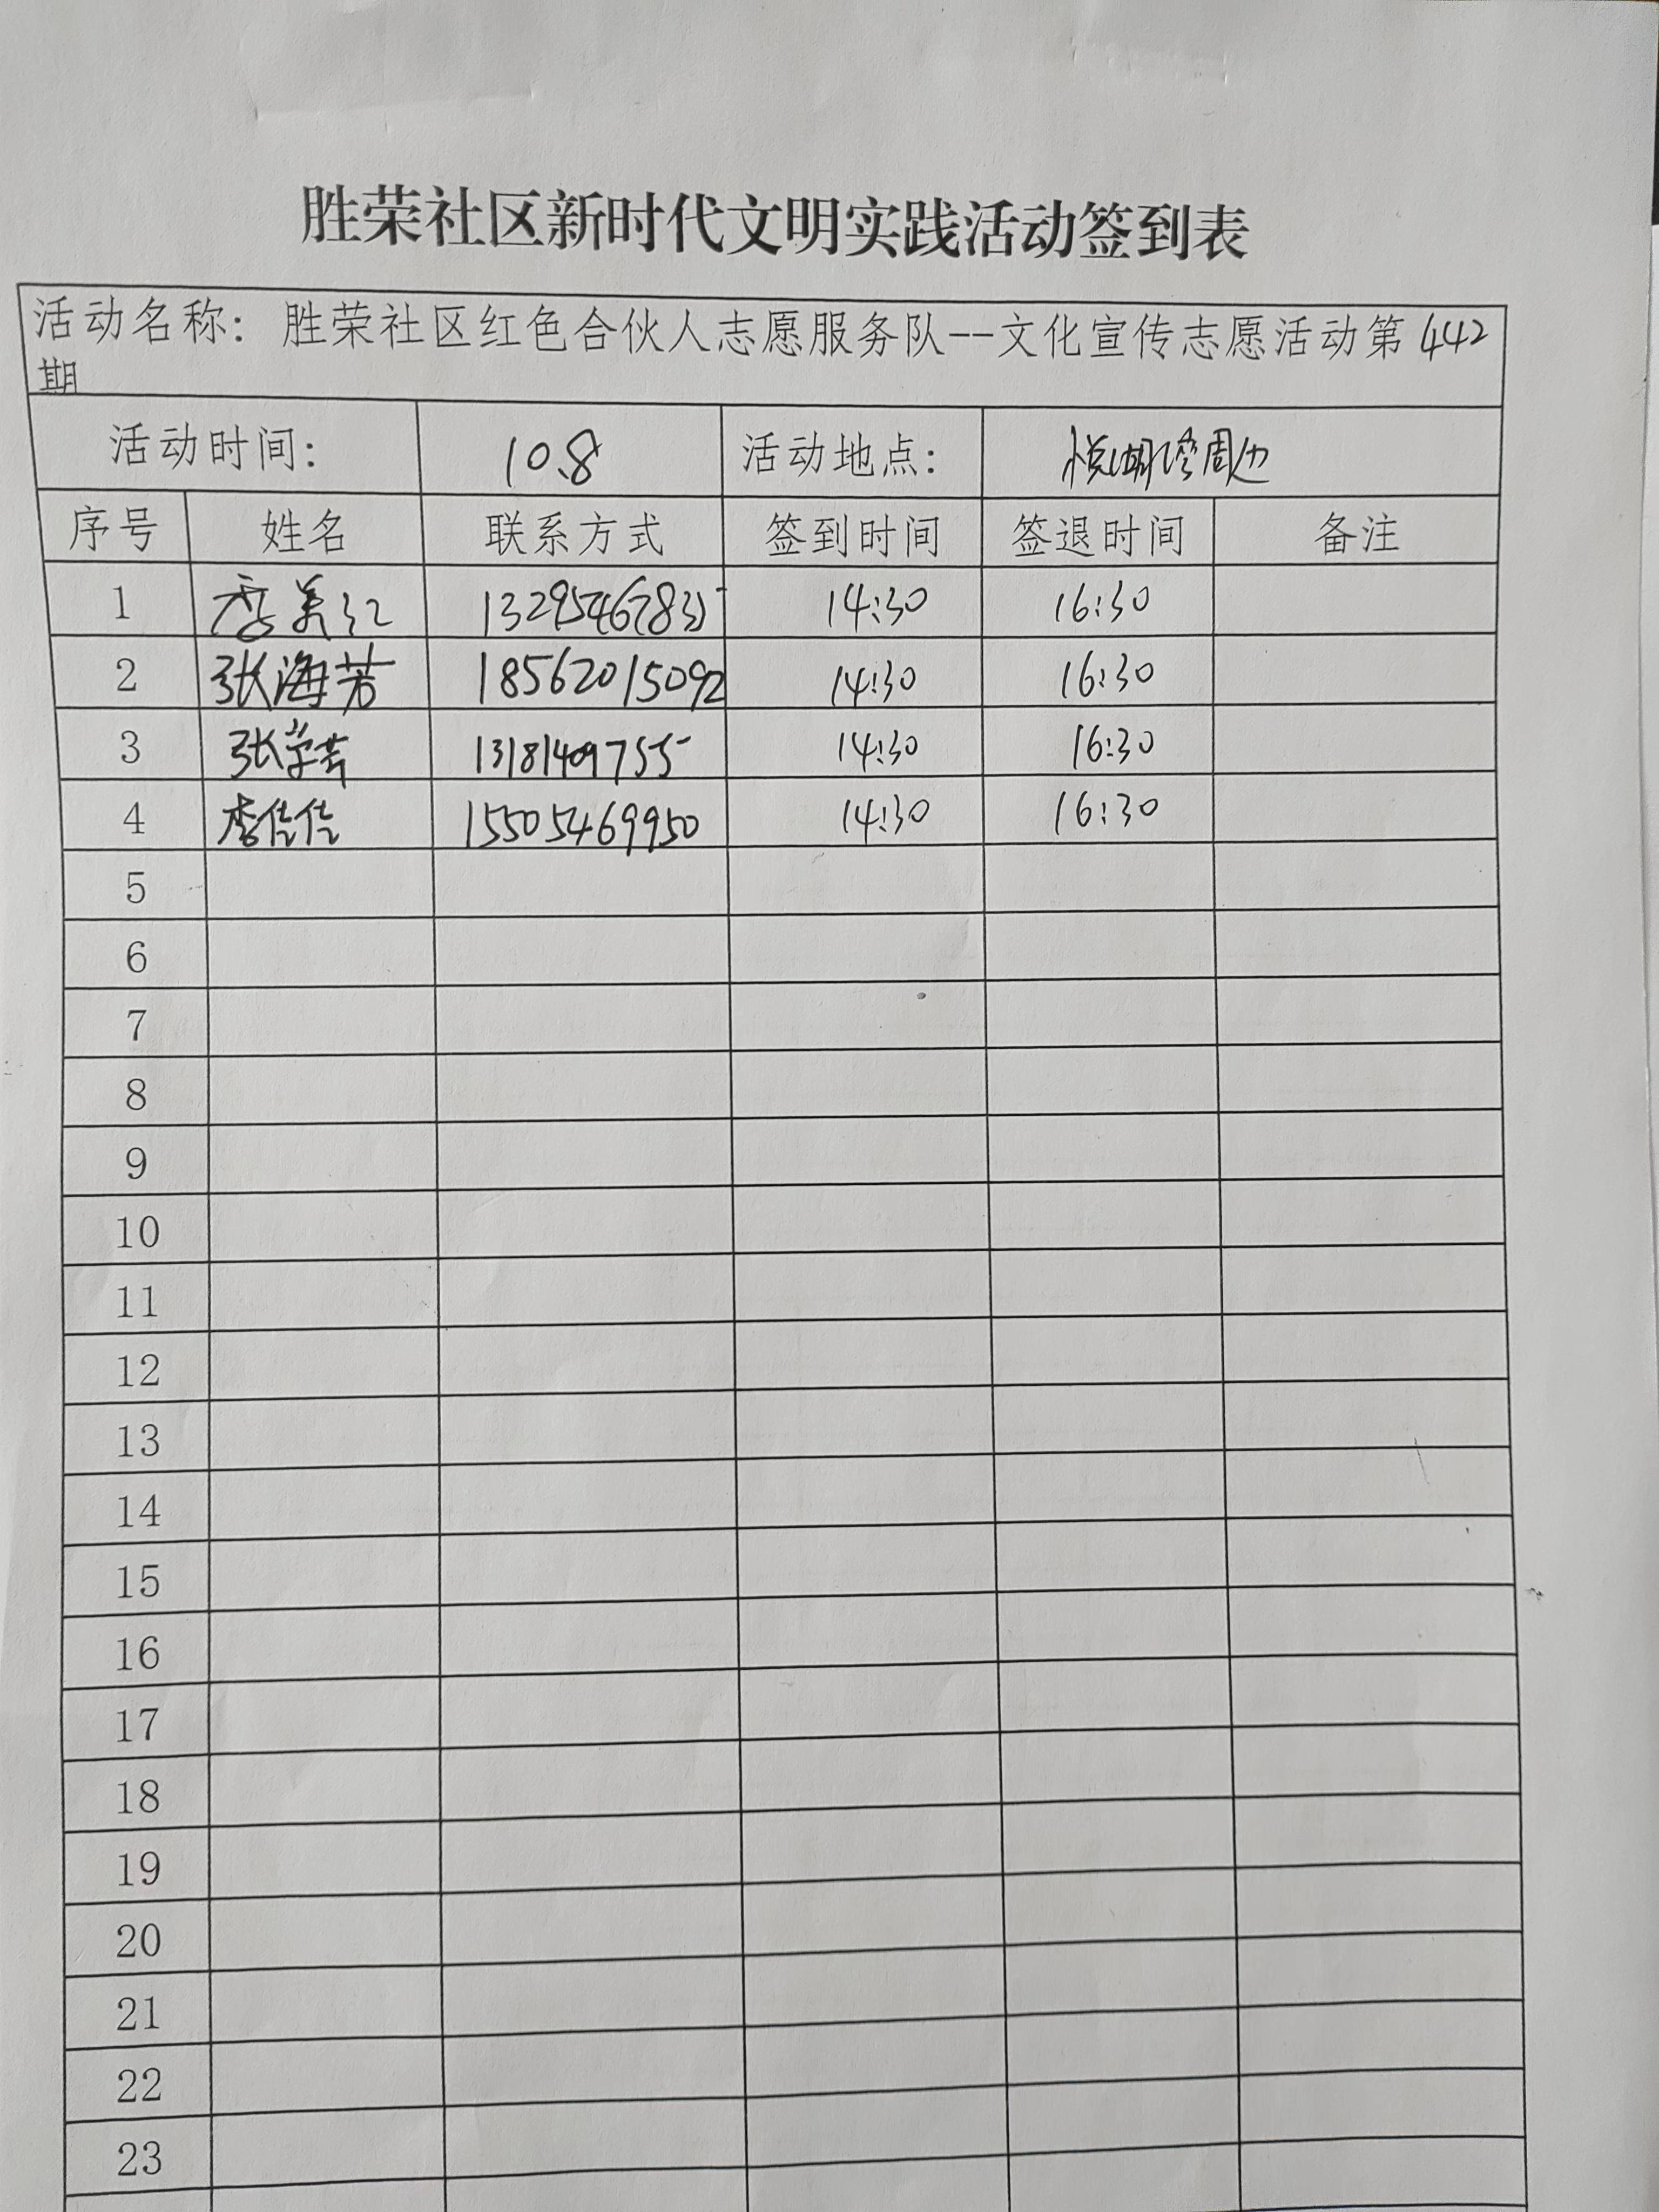 胜荣社区新时代文明实践活动签到表
活动名称：胜荣社区红色合伙人志愿服务队--文化宣传志愿活动第442
期
活动时间： 10.8 活动地点： 悦湖湾周边
序号 姓名 联系方式 签到时间 签退时间 备注
1 李美红 14:30 16:30
2 张海芳 18562015092 14:30 16:30
3 张学芸 14:30 16:30
4 李佳佳 15505469950 14:30 16:30
5
6
7
8
9
10
11
12
13
14
15
16
17
18
19
20
21
22
23